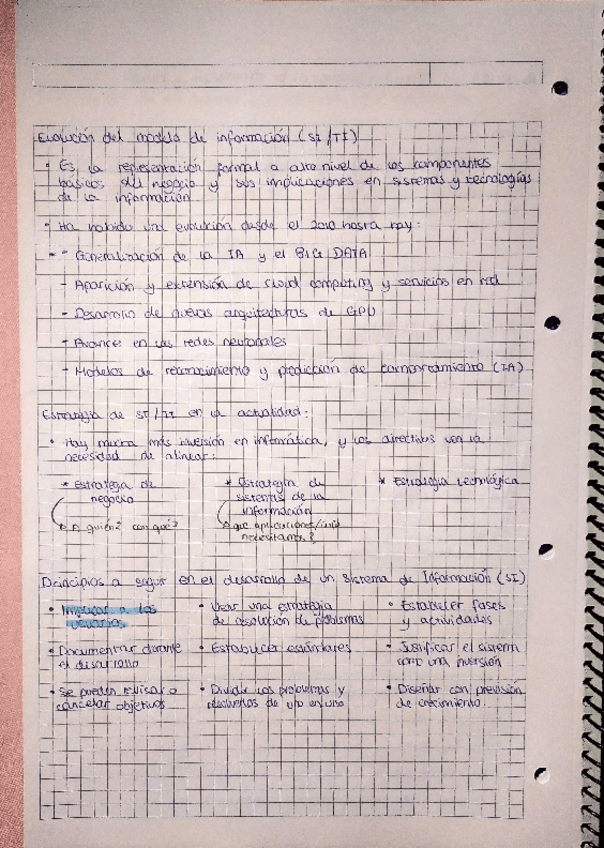 Evolución del modelo de información (SI/TI)
• Es la representación formal a alto nivel de los componentes
básicos del negocio y sus implicaciones en sistemas y tecnologías
de la información
• Ha habido una evolución desde el 2010 hasta hoy:
- Generalización de la IA y el BIG DATA
- Aparición y extensión de cloud computing y servicios en red
- Desarrollo de nuevas arquitecturas de GPU
- Avances en las redes neuronales
- Modelos de reconocimiento y predicción de comportamiento (IA)
Estrategia de SI/TI en la actualidad:
• Hay mucha más inversión en informática, y los directivos ven la
necesidad de alinear:
* Estrategia de
negocio
A quién? con qué?
* Estrategia de
sistemas de la
información
que aplicaciones
necesitamos?
* Estrategia tecnológica
Principios a seguir en el desarrollo de un Sistema de Información (SI)
• Implicar a los
usuarios
• Usar una estrategia
de resolución de problemas
• Establecer fases
y actividades
• Documentar durante
el desarrollo
• Establecer estándares
• Justificar el sistema
como una inversión
• Se pueden revisar o
cancelar objetivos
• Dividir los problemas y
resolverlos de uno en uno
• Diseñar con previsión
de crecimiento.